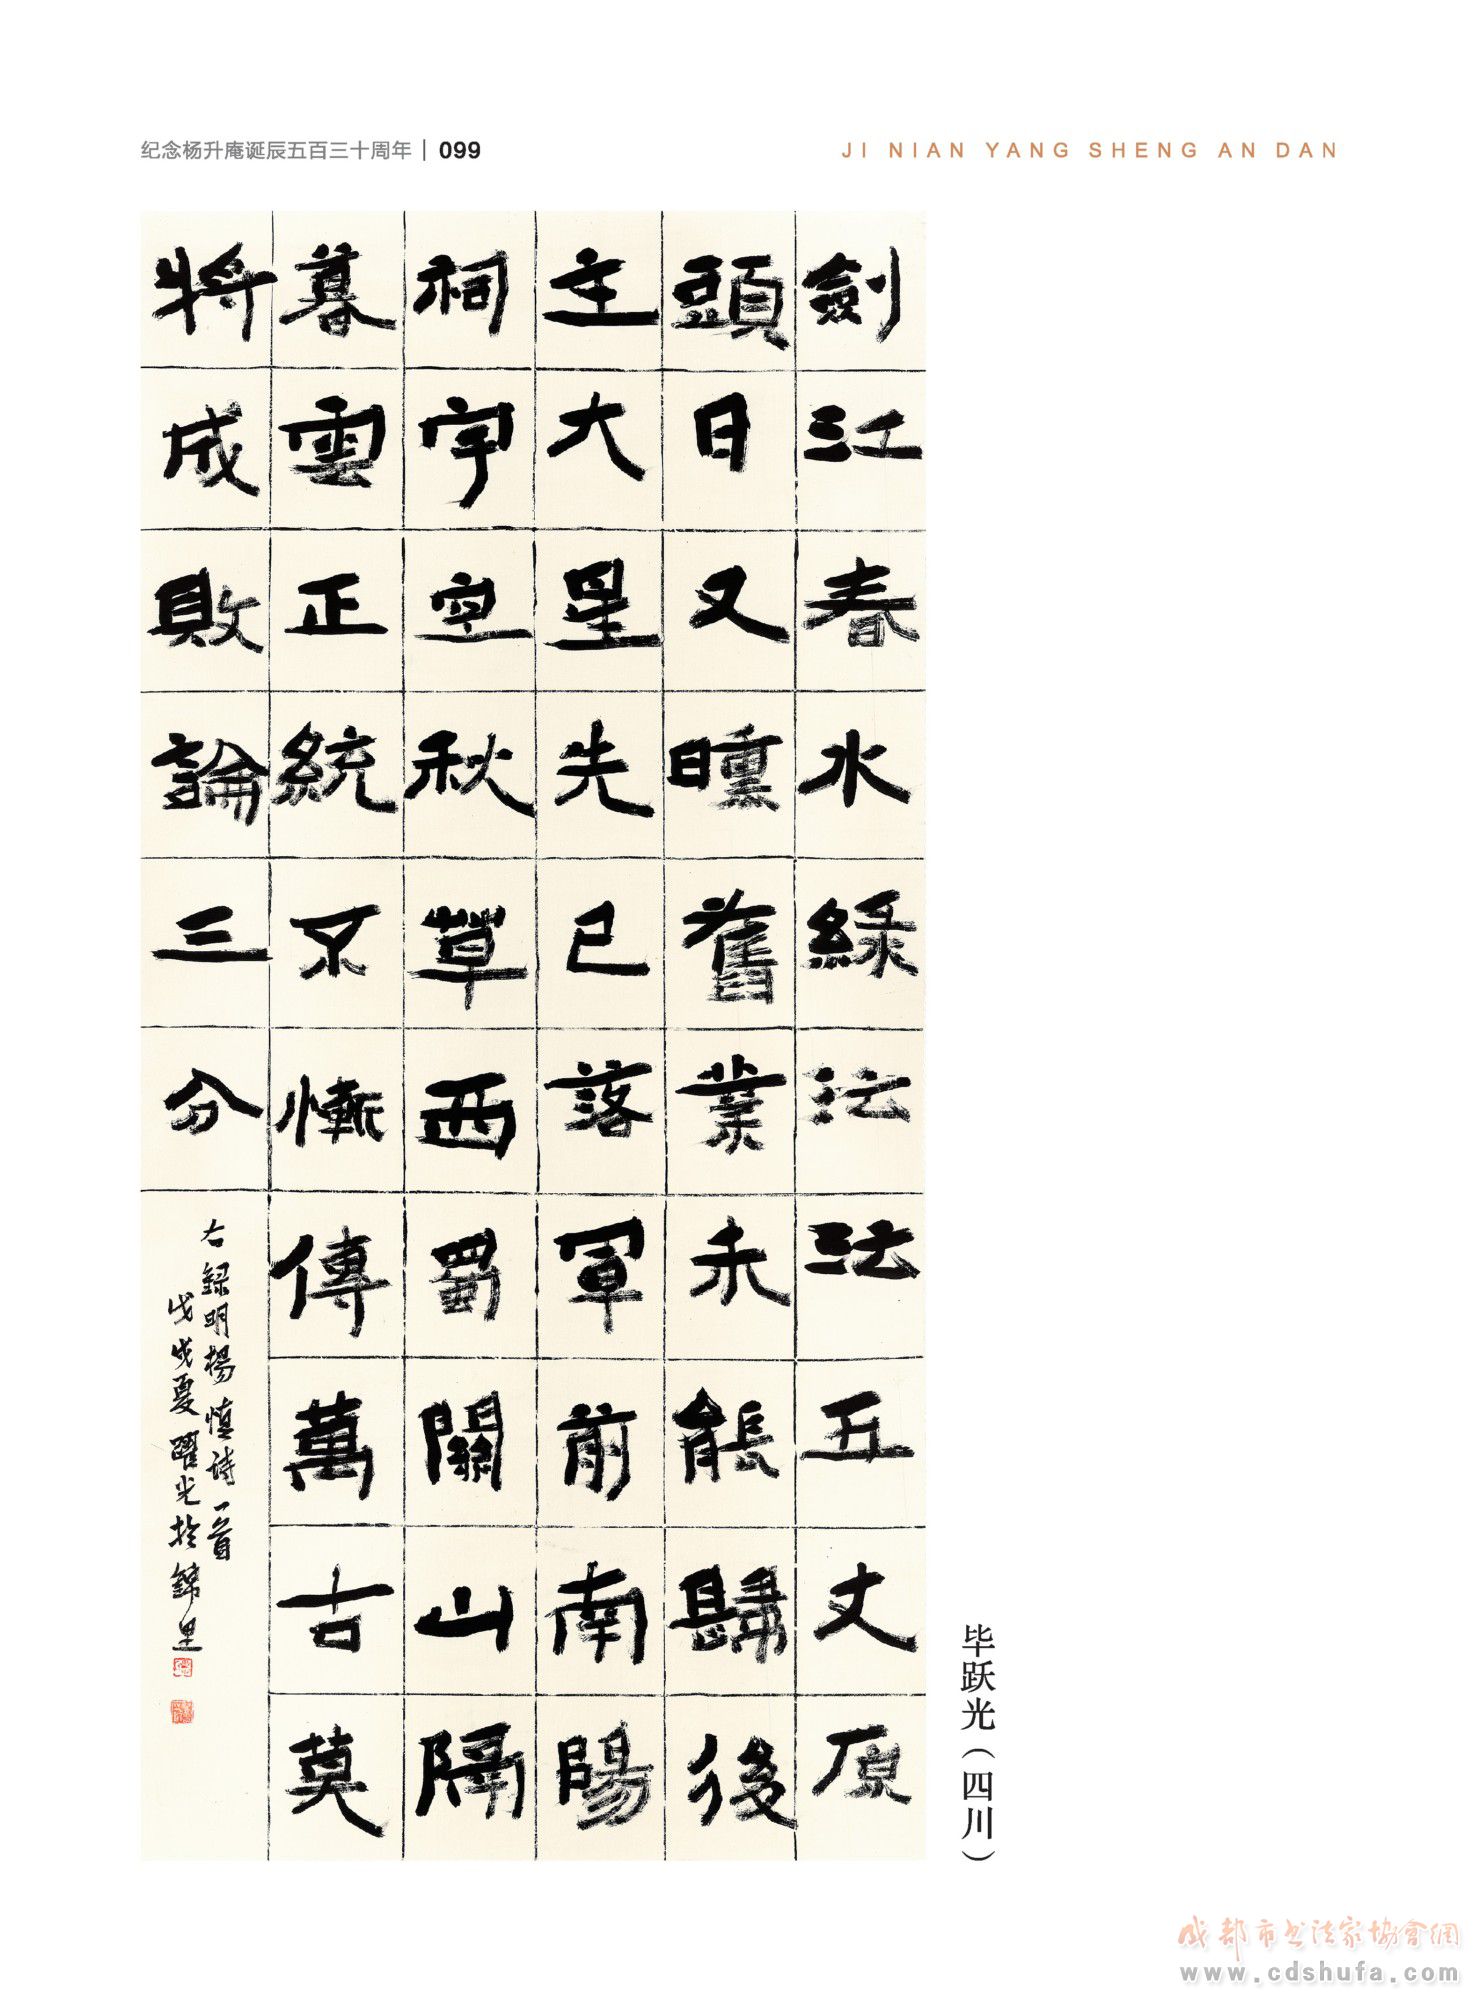 纪念杨升庵诞辰五百三十周年 | 099
JI NIAN YANG SHENG AN DAN
劍江春水綠沄沄五丈原
頭日又曛舊業未能歸後
主大星先已落軍前南陽
祠宇空秋草西蜀關山隔
暮雲正統不慚傳萬古莫
將成敗論三分
右録明楊慎詩一首
戊戌夏躍光於錦里
毕跃光（四川）
成都市书法家協會網
www.cdshufa.com